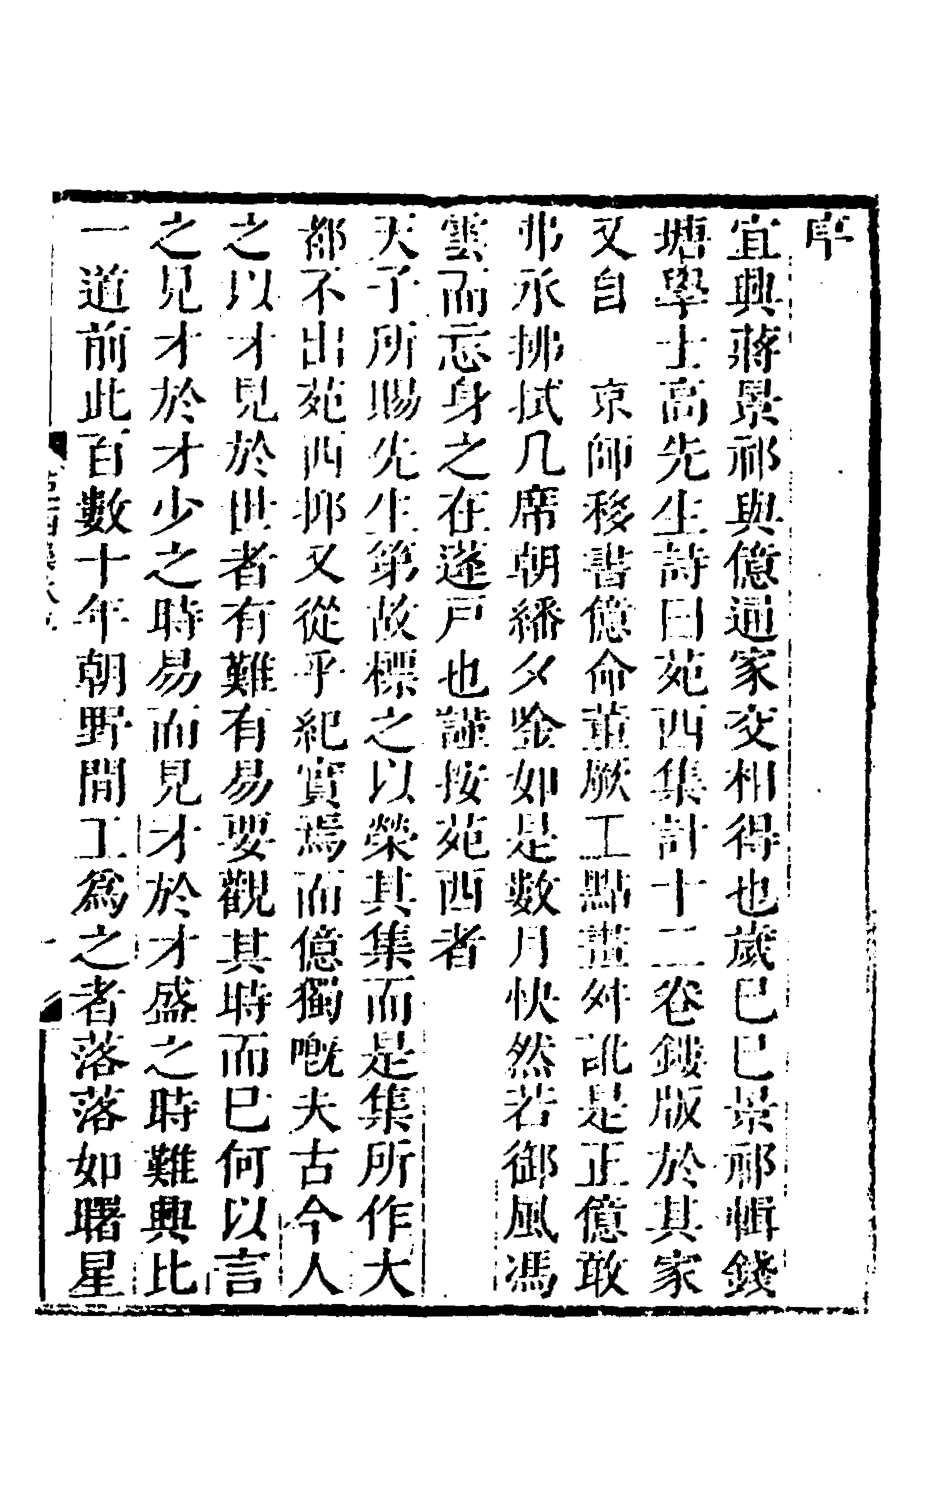 序
宜興蔣景祁與億通家交相得也歲巳巳景祁輯錢
塘學士高先生詩曰苑西集計十二卷鏤版於其家
又自　京師移書億命董厥工點畫舛訛是正億敢
弗承拂拭几席朝繙夕鉴如是數月快然若御風馮
雲而忘身之在蓬戸也謹按苑西者
天子所賜先生第故標之以榮其集而是集所作大
都不出苑西抑又從乎紀實焉而億獨嘅夫古今人
之以才見於世者有難有易要觀其時而巳何以言
之見才於才少之時易而見才於才盛之時難興比
一道前此百數十年朝野間工爲之者落落如曙星